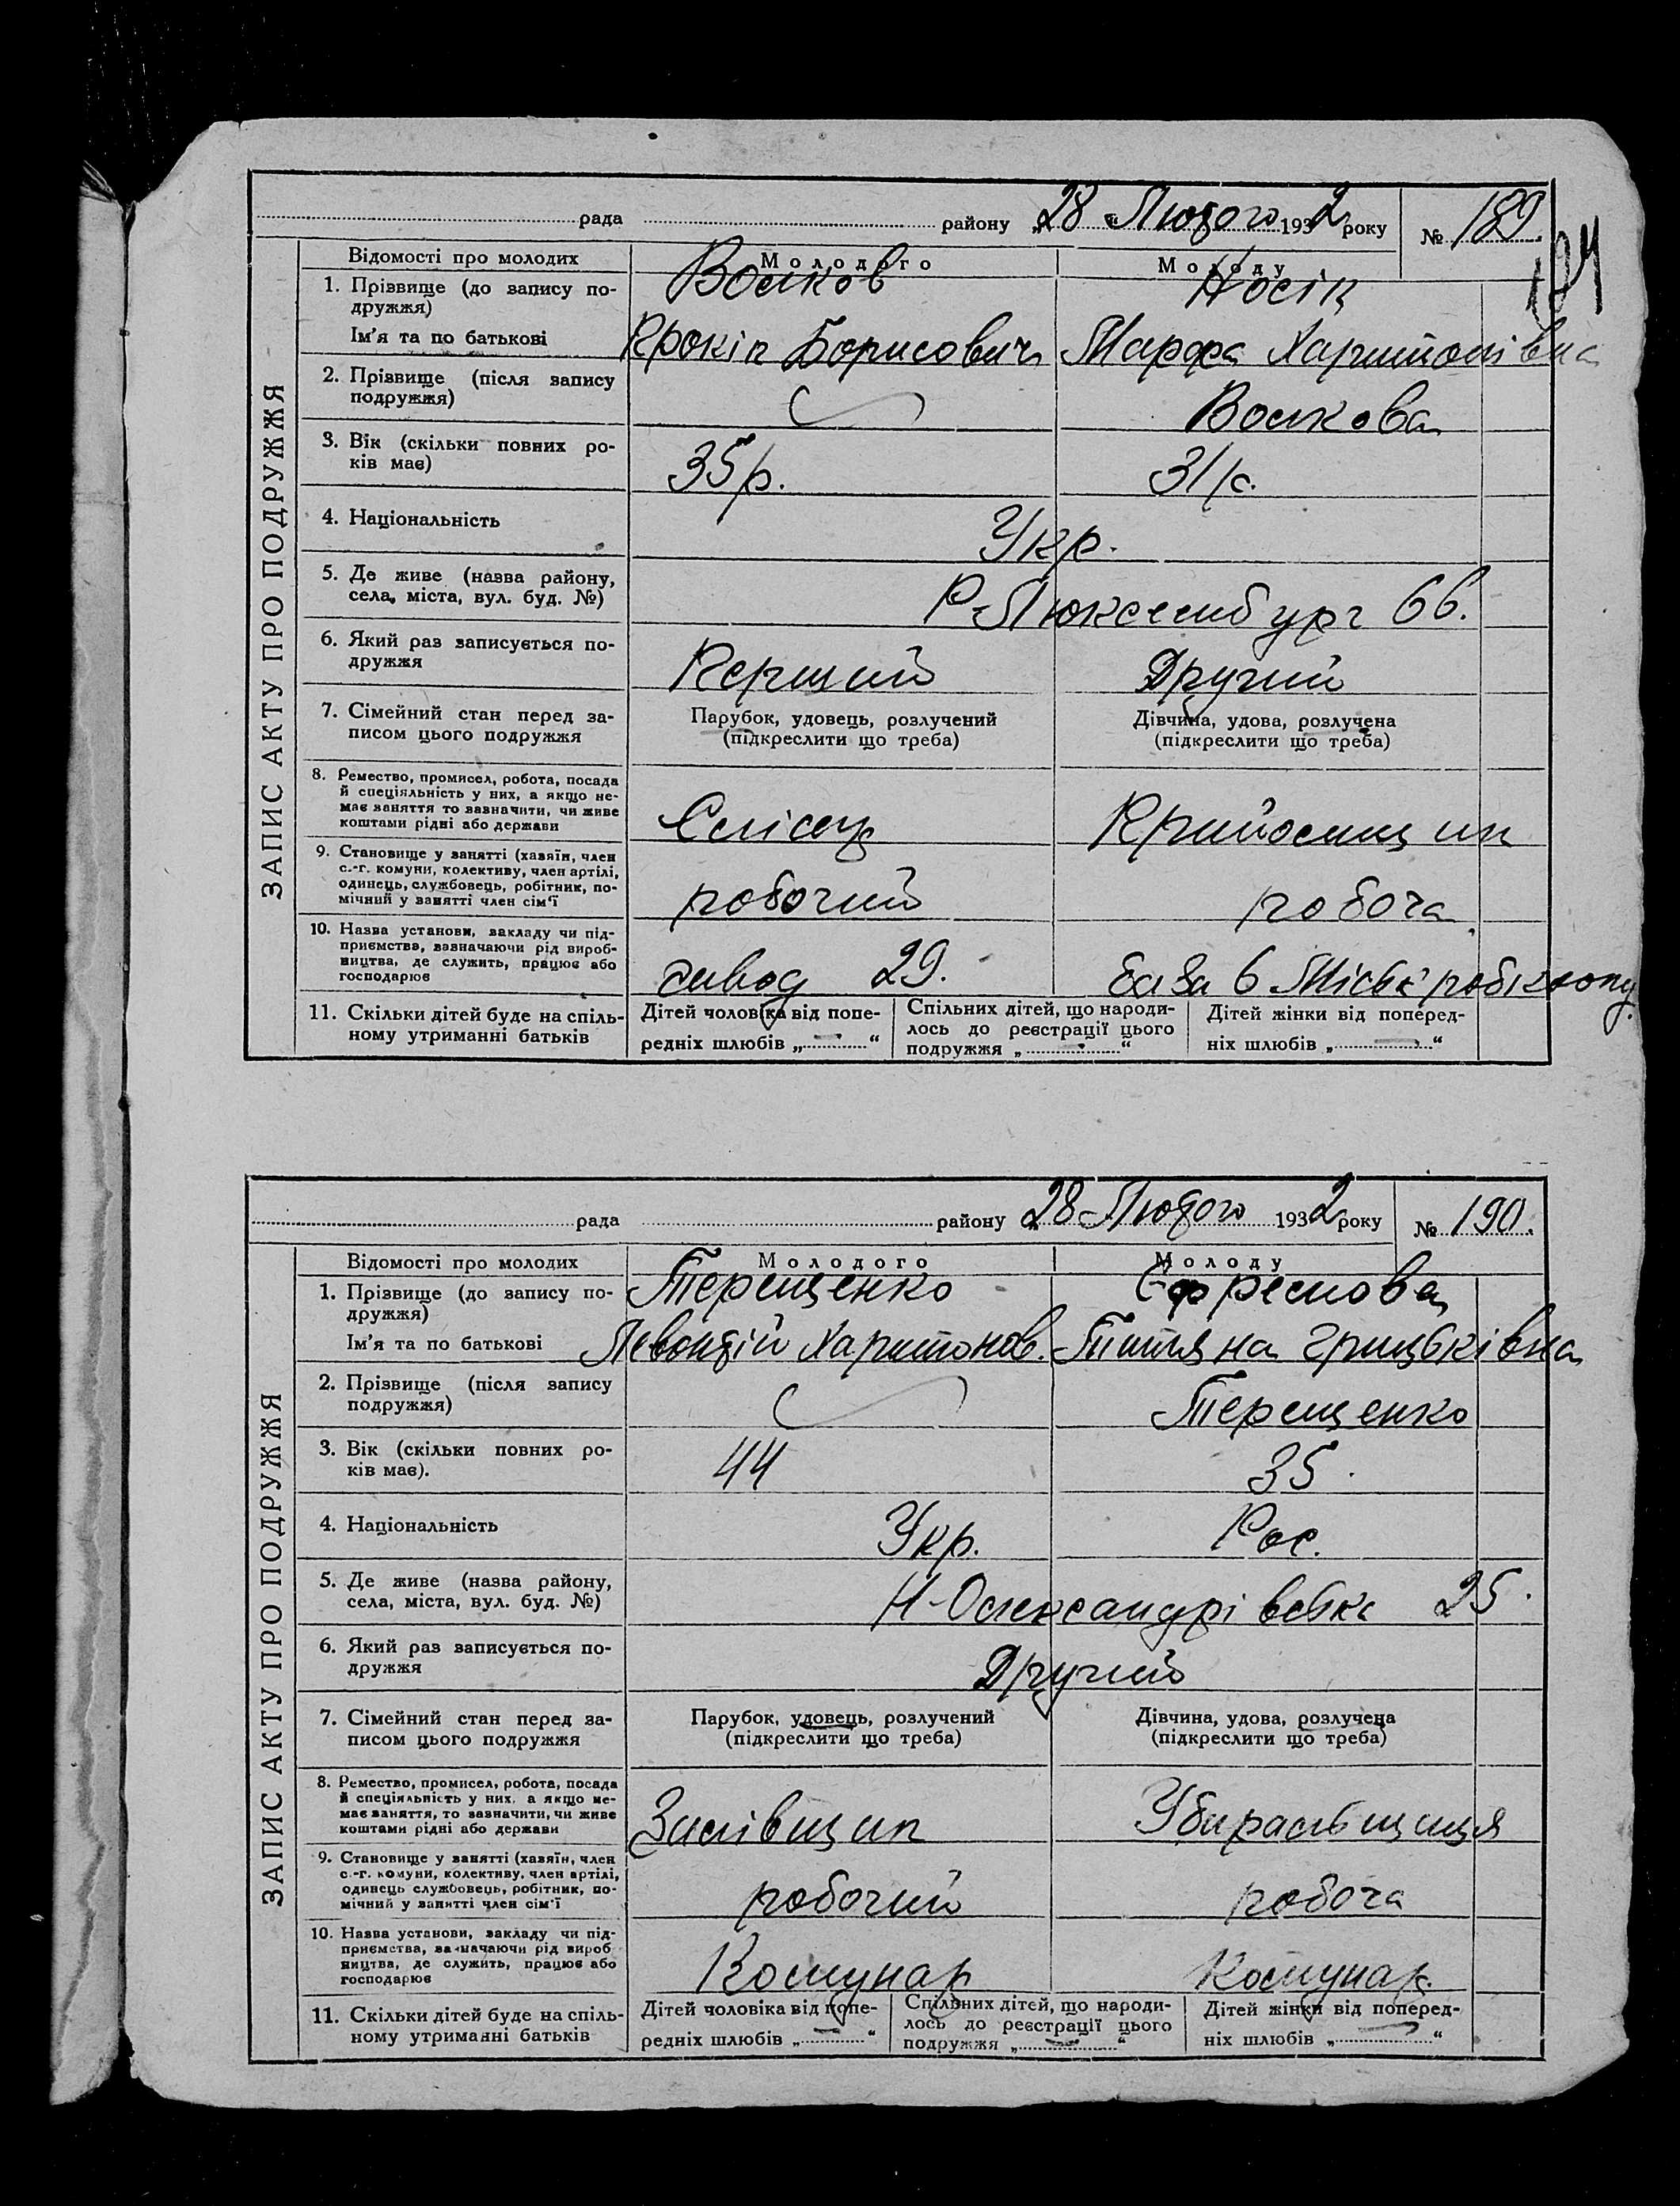 рада району „28 Лютого 1932 року № 189.
194
ЗАПИС АКТУ ПРО ПОДРУЖЖЯ
Відомості про молодих Молодого Молоду
1. Прізвище (до запису по-
дружжя) Волков Носік
Ім'я та по батькові Прокіп Борисович Марфа Харитонівна
2. Прізвище (після запису
подружжя) Волкова
3. Вік (скільки повних ро-
ків має) 35 р. 31 р.
4. Національність Укр.
5. Де живе (назва району,
села, міста, вул. буд. №) Р-Люксембург 66.
6. Який раз записується по-
дружжя Перший Другий
7. Сімейний стан перед за-
писом цього подружжя
Парубок, удовець, розлучений
(підкреслити що треба)
Дівчина, удова, розлучена
(підкреслити що треба)
8. Ремество, промисел, робота, посада
й спеціяльність у них, а якщо не-
має заняття то зазначити, чи живе
коштами рідні або держави
Слісар Прийомщик
9. Становище у занятті (хазяїн, член
с.-г. комуни, колективу, член артілі,
одинець, службовець, робітник, по-
мічний у занятті член сім'ї
робочий робоча
10. Назва установи, закладу чи під-
приємства, зазначаючи рід вироб-
ництва, де служить, працює або
господарює
завод 29. база 6 Міськробкоопу.
11. Скільки дітей буде на спіль-
ному утриманні батьків
Дітей чоловіка від попе-
редніх шлюбів „ — “
Спільних дітей, що народи-
лось до реєстрації цього
подружжя „ - “
Дітей жінки від поперед-
ніх шлюбів „ — “
рада району „28 Лютого 1932 року № 190.
ЗАПИС АКТУ ПРО ПОДРУЖЖЯ
Відомості про молодих Молодого Молоду
1. Прізвище (до запису по-
дружжя) Терещенко Єфремова
Ім'я та по батькові Левонтій Харитонов. Тетяна Грицьківна
2. Прізвище (після запису
подружжя) Терещенко
3. Вік (скільки повних ро-
ків має). 44 35.
4. Національність Укр. Рос.
5. Де живе (назва району,
села, міста, вул. буд. №) Н-Олександрівська 25.
6. Який раз записується по-
дружжя Другий
7. Сімейний стан перед за-
писом цього подружжя
Парубок, удовець, розлучений
(підкреслити що треба)
Дівчина, удова, розлучена
(підкреслити що треба)
8. Ремество, промисел, робота, посада
й спеціяльність у них, а якщо не-
має заняття, то зазначити, чи живе
коштами рідні або держави
Убиральщиця
9. Становище у занятті (хазяїн, член
с.-г. комуни, колективу, член артілі,
одинець службовець, робітник, по-
мічний у занятті член сім'ї
робочий робоча
10. Назва установи, закладу чи під-
приємства, зазначаючи рід вироб
ництва, де служить, працює або
господарює
Комунар Комунар.
11. Скільки дітей буде на спіль-
ному утриманні батьків
Дітей чоловіка від попе-
редніх шлюбів „ — “
Спільних дітей, що народи-
лось до реєстрації цього
подружжя „ — “
Дітей жінки від поперед-
ніх шлюбів „ — “